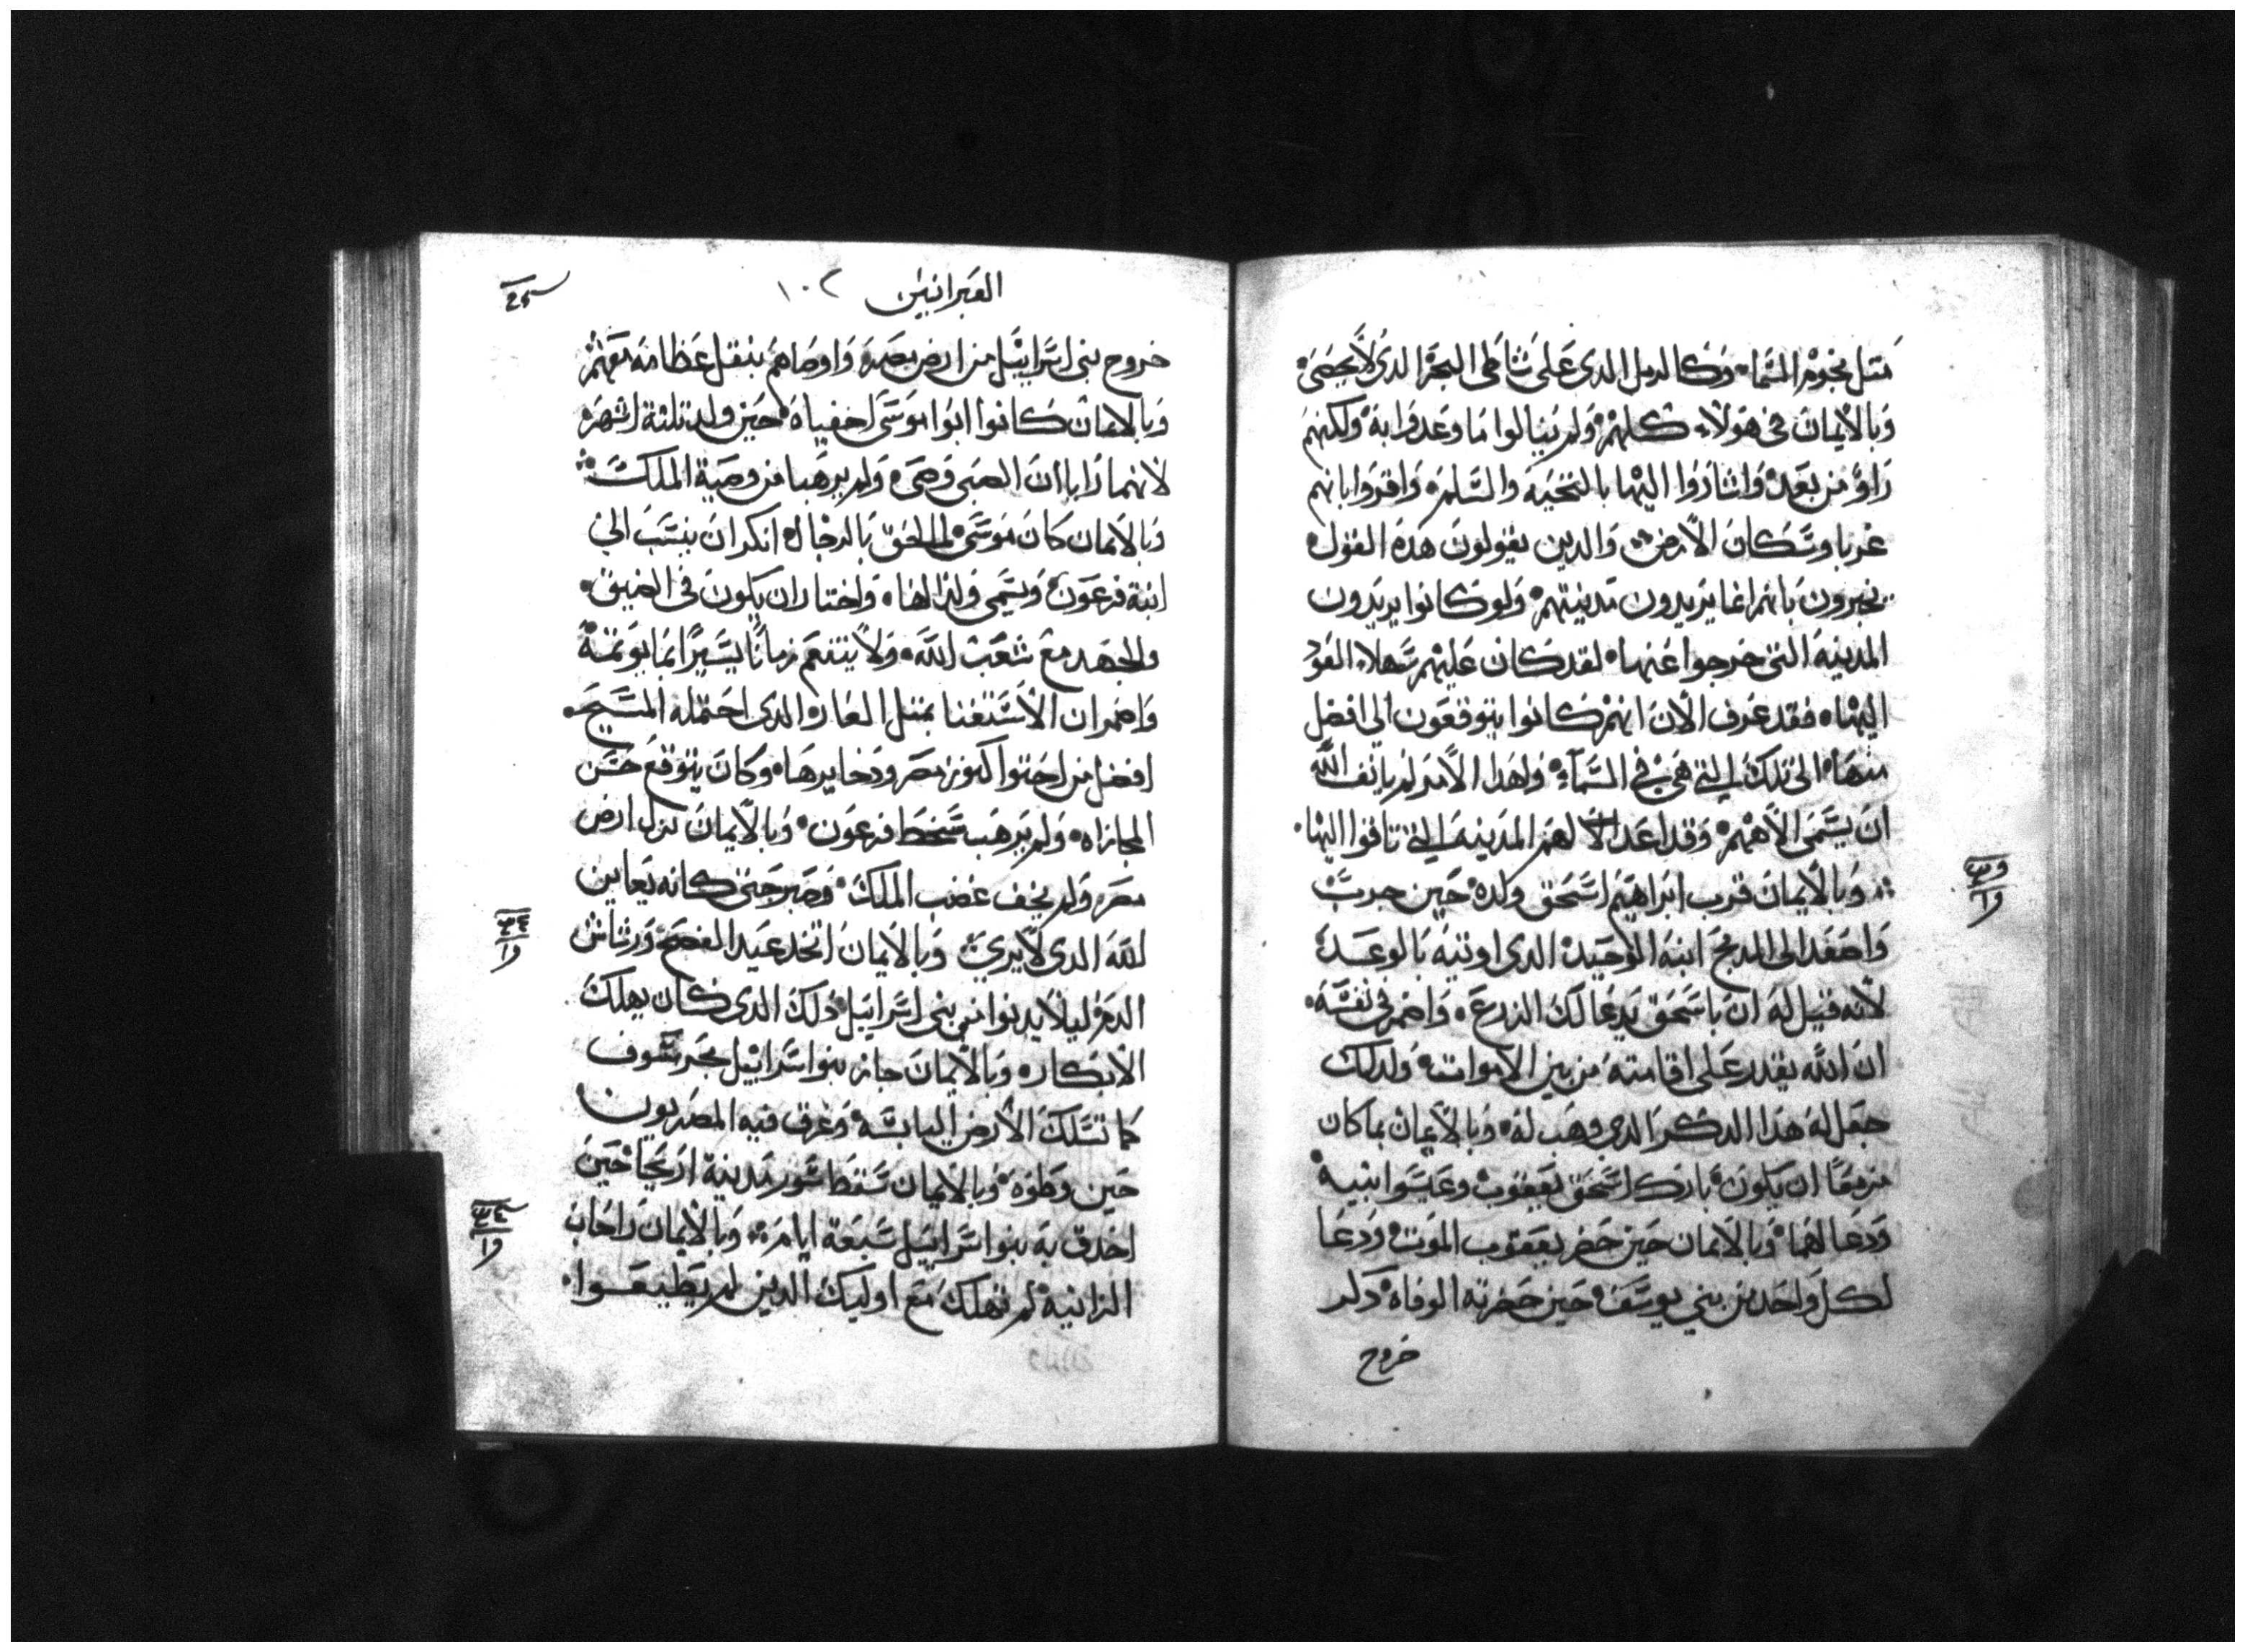 مثل نجوم السما وكالرمل الدى على شاطى البحر الدى لا يحصى
وبالايمان في هولاء كلهم ولم ينالوا ما وعدوا به ولكنهم
راوه من بعد واشاروا اليها بالتحيه والسلم واقروا بانهم
غربا وسكان الارض والدين يقولون هده القول
يخبرون بانهم انما يريدون مدينتهم ولو كانوا يريدون
المدينه التى خرجوا عنها لقد كان عليهم سهلا العود
اليها فقد عرف الان انهم كانوا يتوقعون الى افضل
منها الى تلك التي هي في السماء ولهدا الامر لم يانف الله
ان يسمى الاههم وقد اعد لهم المدينه التي تاقوا اليها
وبالايمان قرب ابراهيم اسحق ولده حين جرب
واصعد الى المدبح ابنه الوحيد الدى اوتيه بالوعد
لانه قيل له ان باسحق يدعا لك الزرع واضمر في نفسه
ان الله يقدر على اقامته من بين الاموات ولدلك
جعل له هدا الدكر الدي وهب له وبالايمان بما كان
مزمعا ان يكون بارك اسحق يعقوب وعيسوا ابنيه
ودعا لهما وبالايمان حين حضر يعقوب الموت ودعا
لكل واحد من بني يوسف حين حضرته الوفاه دكر
خروج
العبرانيين ١٠٢
خروج بنى اسراييل من ارض مصر واوصاهم بنقل عظامه معهم
وبالايمان كانوا ابوا موسى اخفياه حين ولد ثلثة اشهر
لانهما رايا ان الصبى وضى ولم يرهبا من وصية الملك
وبالايمان كان موسى لما لحق بالرجال انكر ان ينسب الي
ابنة فرعون ويسمى ولدا لها واختار ان يكون في الضيق
والجهد مع شعب الله ولا يتنعم زمانا يسيرا بما يوتمه
واضمر ان الاستغنا بمثل العار الدى احتمله المسيح
افضل من احتوا كنوز مصر ودخايرها وكان يتوقع حسن
المجازاه ولم يرهب سخط فرعون وبالايمان ترك ارض
مصر ولم يخف غضب الملك وصبر حتى كانه يعاين
الله الدى لا يري وبالايمان اتخد عيد الفصح ورشاش
الدم ليلا يدنوا من بني اسراييل دلك الدى كان يهلك
الابكار وبالايمان جاز بنوا اسراييل بحر سوف
كما تسلك الارض اليابسه وغرق فيه المصريون
حين وطوه وبالايمان سقط سور مدينة اريحا حين
احدق به بنوا اسراييل سبعة ايام وبالايمان راحاب
الزانيه لم تهلك مع اوليك الدين لم يطيعوا